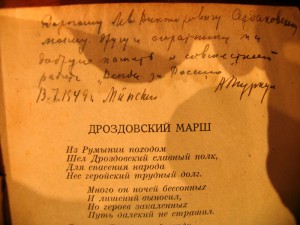 Дорогому Льву Викторовичу
моему другу и соратнику на
добрую память о совместной
работе
13.7.1949г.
ДРОЗДОВСКИЙ МАРШ
Из Румынии походом
Шел Дроздовский славный полк,
Для спасения народа
Нес геройский трудный долг.
Много он ночей бессонных
И лишений выносил,
Но героев закаленных
Путь далекий не страшил.